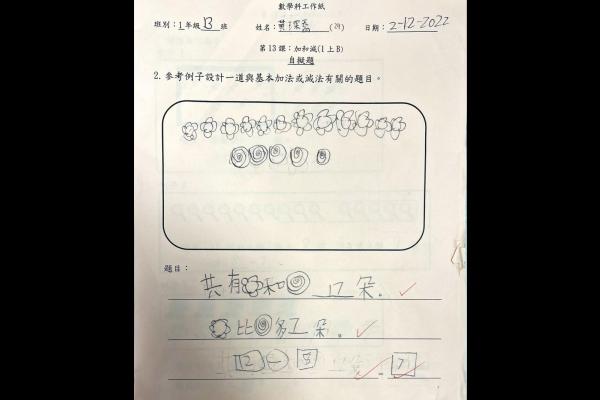 數學科工作紙
班別：1年級 B 班 姓名：黃 (29) 日期：2-12-2022
第13課：加和減(1上B)
自擬題
2. 參考例子設計一道與基本加法或減法有關的題目。
題目：
共有和 17 朵。
比多7朵。
12 - 5 = 7